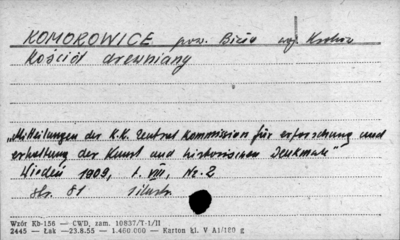 KOMOROWICE pow. Biała woj. Kraków
Kościół drewniany
„Mitteilungen der K.K. Zentral Kommission für erforschung und
erhaltung der Kunst und historischen Denkmale"
Wiedeń 1909, t. VIII, Nr. 2
str. 81 ilustr.
Wzór Kb-156 — CWD, zam. 10837/T-1/II
2445 — Łak —23.8.55 — 1.400.000 — Karton kl. V A1/180 g